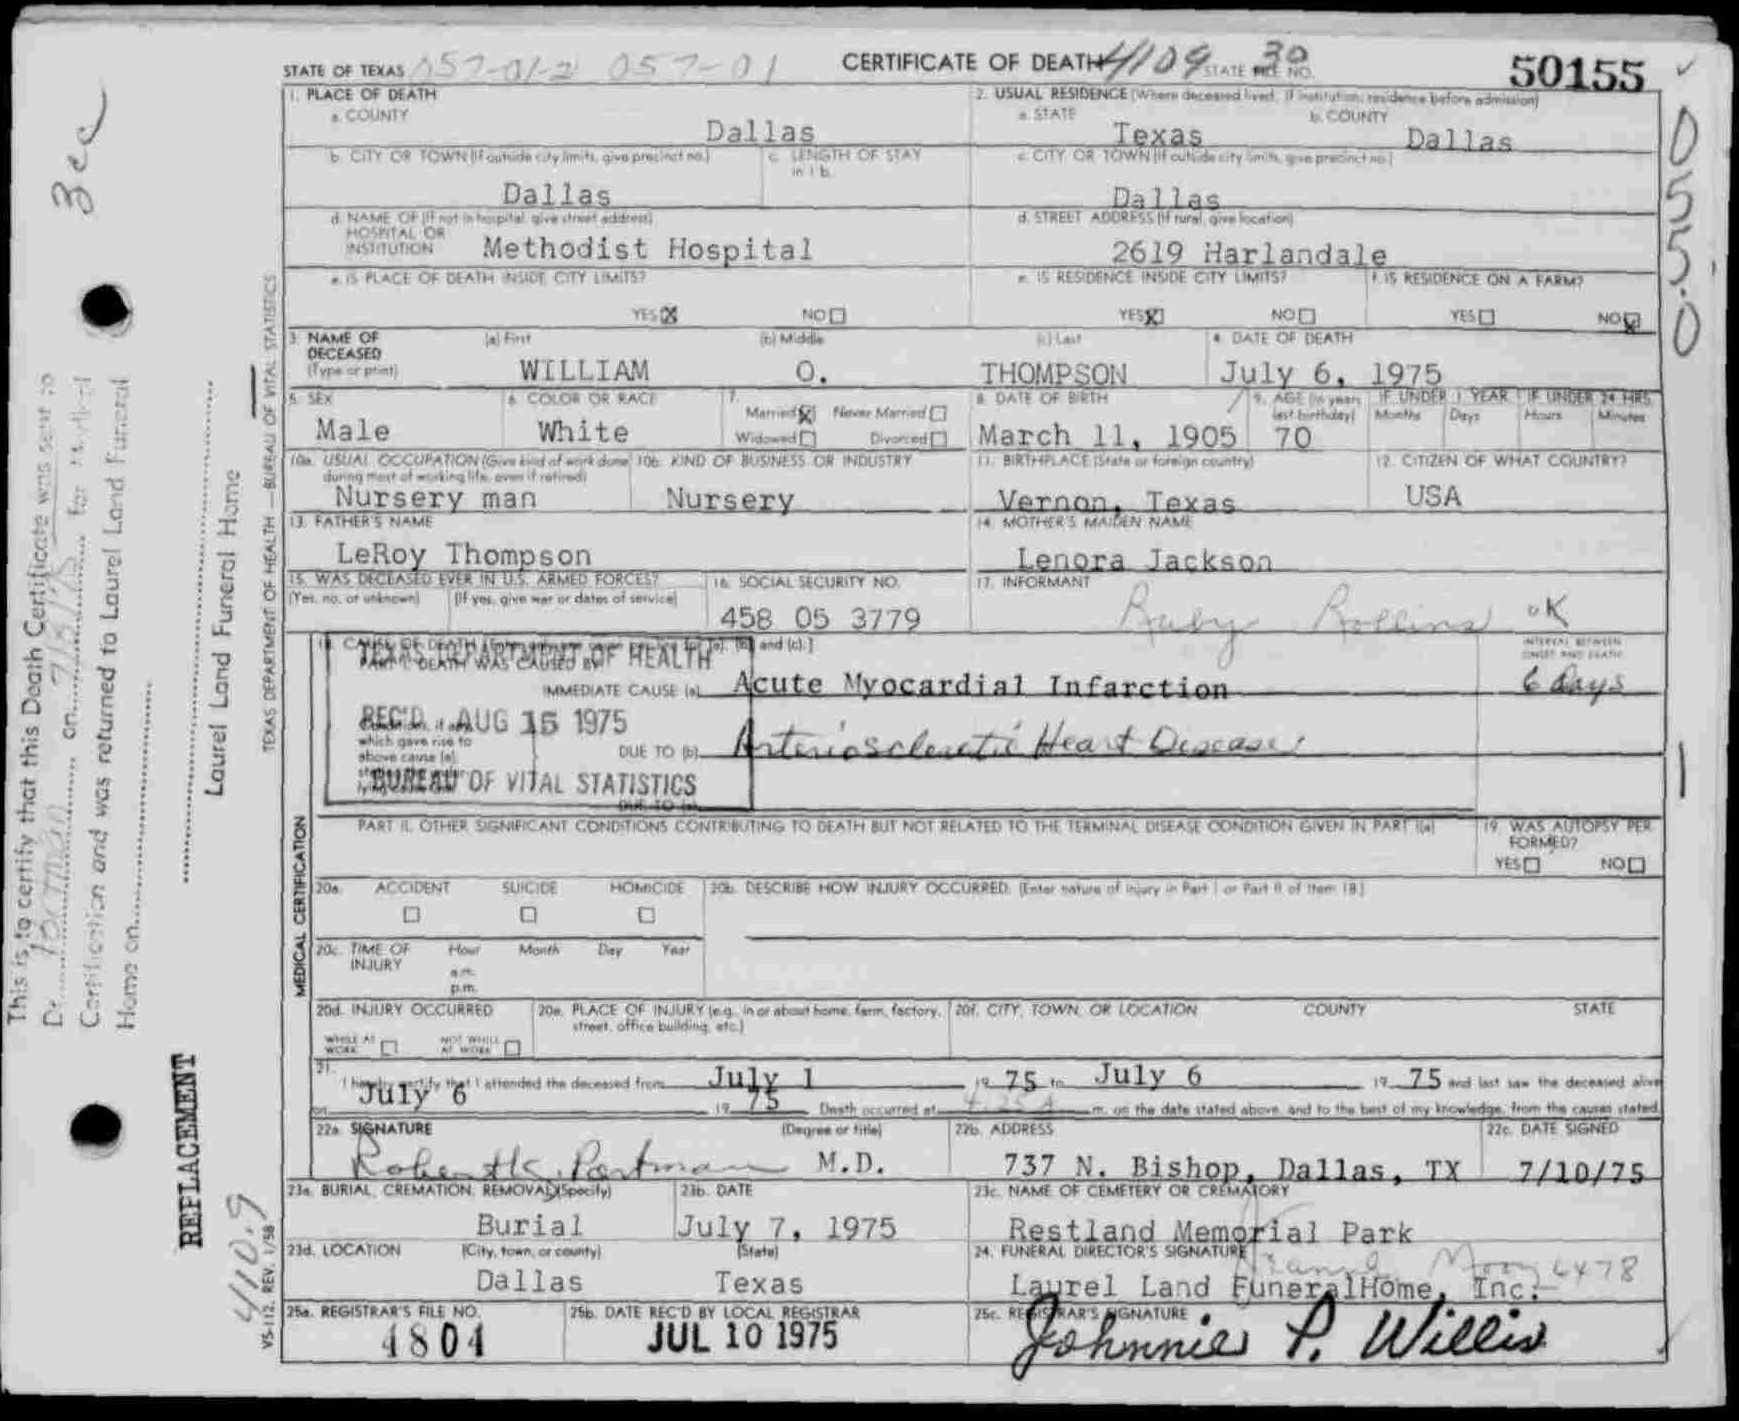 STATE OF TEXAS 057-01-2 057-01 CERTIFICATE OF DEATH 4109 STATE FILE NO. 30 50155
1. PLACE OF DEATH 2. USUAL RESIDENCE (Where deceased lived. If institution, residence before admission)
a. COUNTY Dallas a. STATE Texas b. COUNTY Dallas
b. CITY OR TOWN (If outside city limits, give precinct no.) Dallas c. LENGTH OF STAY in 1 b. c. CITY OR TOWN (If outside city limits, give precinct no.) Dallas
d. NAME OF (If not in hospital, give street address) HOSPITAL OR INSTITUTION Methodist Hospital d. STREET ADDRESS (If rural, give location) 2619 Harlandale
e. IS PLACE OF DEATH INSIDE CITY LIMITS? e. IS RESIDENCE INSIDE CITY LIMITS? f. IS RESIDENCE ON A FARM?
YES NO YES NO YES NO
3. NAME OF DECEASED (Type or print) (a) First WILLIAM (b) Middle O. (c) Last THOMPSON 4. DATE OF DEATH July 6, 1975
5. SEX Male 6. COLOR OR RACE White 7. Married Never Married Widowed Divorced 8. DATE OF BIRTH March 11, 1905 9. AGE (In years last birthday) 70 IF UNDER 1 YEAR Months Days IF UNDER 24 HRS. Hours Minutes
10a. USUAL OCCUPATION (Give kind of work done during most of working life, even if retired) Nursery man 10b. KIND OF BUSINESS OR INDUSTRY Nursery 11. BIRTHPLACE (State or foreign country) Vernon, Texas 12. CITIZEN OF WHAT COUNTRY? USA
13. FATHER'S NAME LeRoy Thompson 14. MOTHER'S MAIDEN NAME Lenora Jackson
15. WAS DECEASED EVER IN U.S. ARMED FORCES? (Yes, no, or unknown) (If yes, give war or dates of service) 16. SOCIAL SECURITY NO. 458 05 3779 17. INFORMANT Ruby Rollins OK
and (c).] INTERVAL BETWEEN ONSET AND DEATH
TEXAS DEPARTMENT OF HEALTH
IMMEDIATE CAUSE (a) Acute Myocardial Infarction 6 days
REC'D AUG 15 1975
which gave rise to above cause (a) DUE TO (b) Arteriosclerotic Heart Disease
BUREAU OF VITAL STATISTICS
DUE TO (c)
PART II. OTHER SIGNIFICANT CONDITIONS CONTRIBUTING TO DEATH BUT NOT RELATED TO THE TERMINAL DISEASE CONDITION GIVEN IN PART I(a) 19. WAS AUTOPSY PERFORMED?
YES NO
20a. ACCIDENT SUICIDE HOMICIDE 20b. DESCRIBE HOW INJURY OCCURRED. (Enter nature of injury in Part I or Part II of Item 18.)
20c. TIME OF INJURY Hour Month Day Year
a.m.
p.m.
20d. INJURY OCCURRED 20e. PLACE OF INJURY (e.g., in or about home, farm, factory, street, office building, etc.) 20f. CITY, TOWN, OR LOCATION COUNTY STATE
WHILE AT WORK NOT WHILE AT WORK
21. I hereby certify that I attended the deceased from July 1 19 75 to July 6 19 75 and last saw the deceased alive
on July 6 19 75 Death occurred at m. on the date stated above, and to the best of my knowledge, from the causes stated.
22a. SIGNATURE (Degree or title) M.D. 22b. ADDRESS 737 N. Bishop, Dallas, TX 22c. DATE SIGNED 7/10/75
23a. BURIAL, CREMATION, REMOVAL (Specify) Burial 23b. DATE July 7, 1975 23c. NAME OF CEMETERY OR CREMATORY Restland Memorial Park
23d. LOCATION (City, town, or county) Dallas (State) Texas 24. FUNERAL DIRECTOR'S SIGNATURE Laurel Land FuneralHome, Inc. 6478
25a. REGISTRAR'S FILE NO. 4804 25b. DATE REC'D BY LOCAL REGISTRAR JUL 10 1975 25c. REGISTRAR'S SIGNATURE Johnnie P. Willis
This is to certify that this Death Certificate was sent to
Dr. on for Medical
Certification and was returned to Laurel Land Funeral
Home on
Laurel Land Funeral Home
REPLACEMENT
4110.9
VS-112, REV. 1/58
TEXAS DEPARTMENT OF HEALTH — BUREAU OF VITAL STATISTICS
MEDICAL CERTIFICATION
055.0